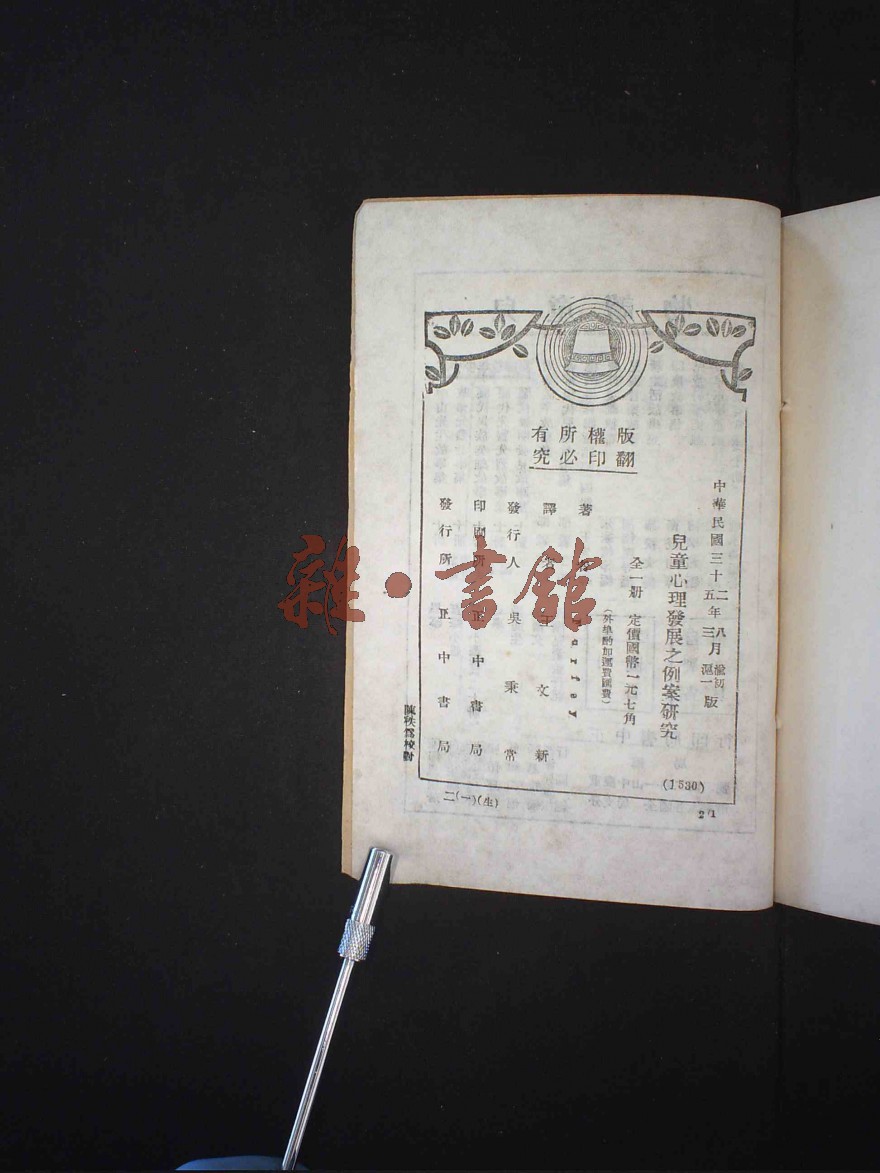 版權所有
翻印必究
中華民國三十二年八月渝初版
中華民國三十五年三月滬一版
兒童心理發展之例案研究
(1530)
全一册 定價國幣一元七角
(外埠酌加運費匯費)
著
譯 王文新
發行人 吳秉常
印刷所 正中書局
發行所 正中書局
校對
二(一)(生)
2/1
雜·書館